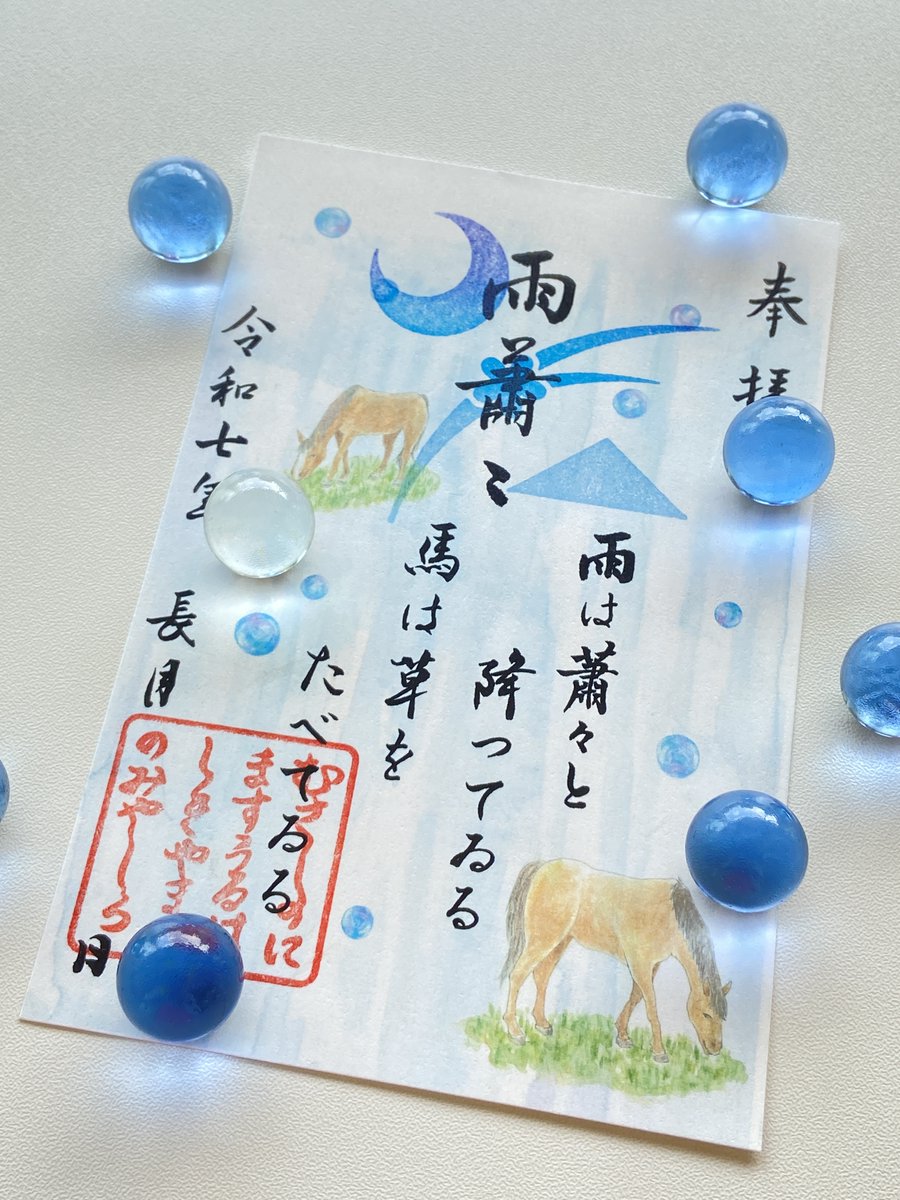 奉拝
雨蕭〻
雨は蕭々と
降つてゐる
馬は草を
たべてゐる
令和七年 長月 日
ますうるは
しきやま
のみやしろ